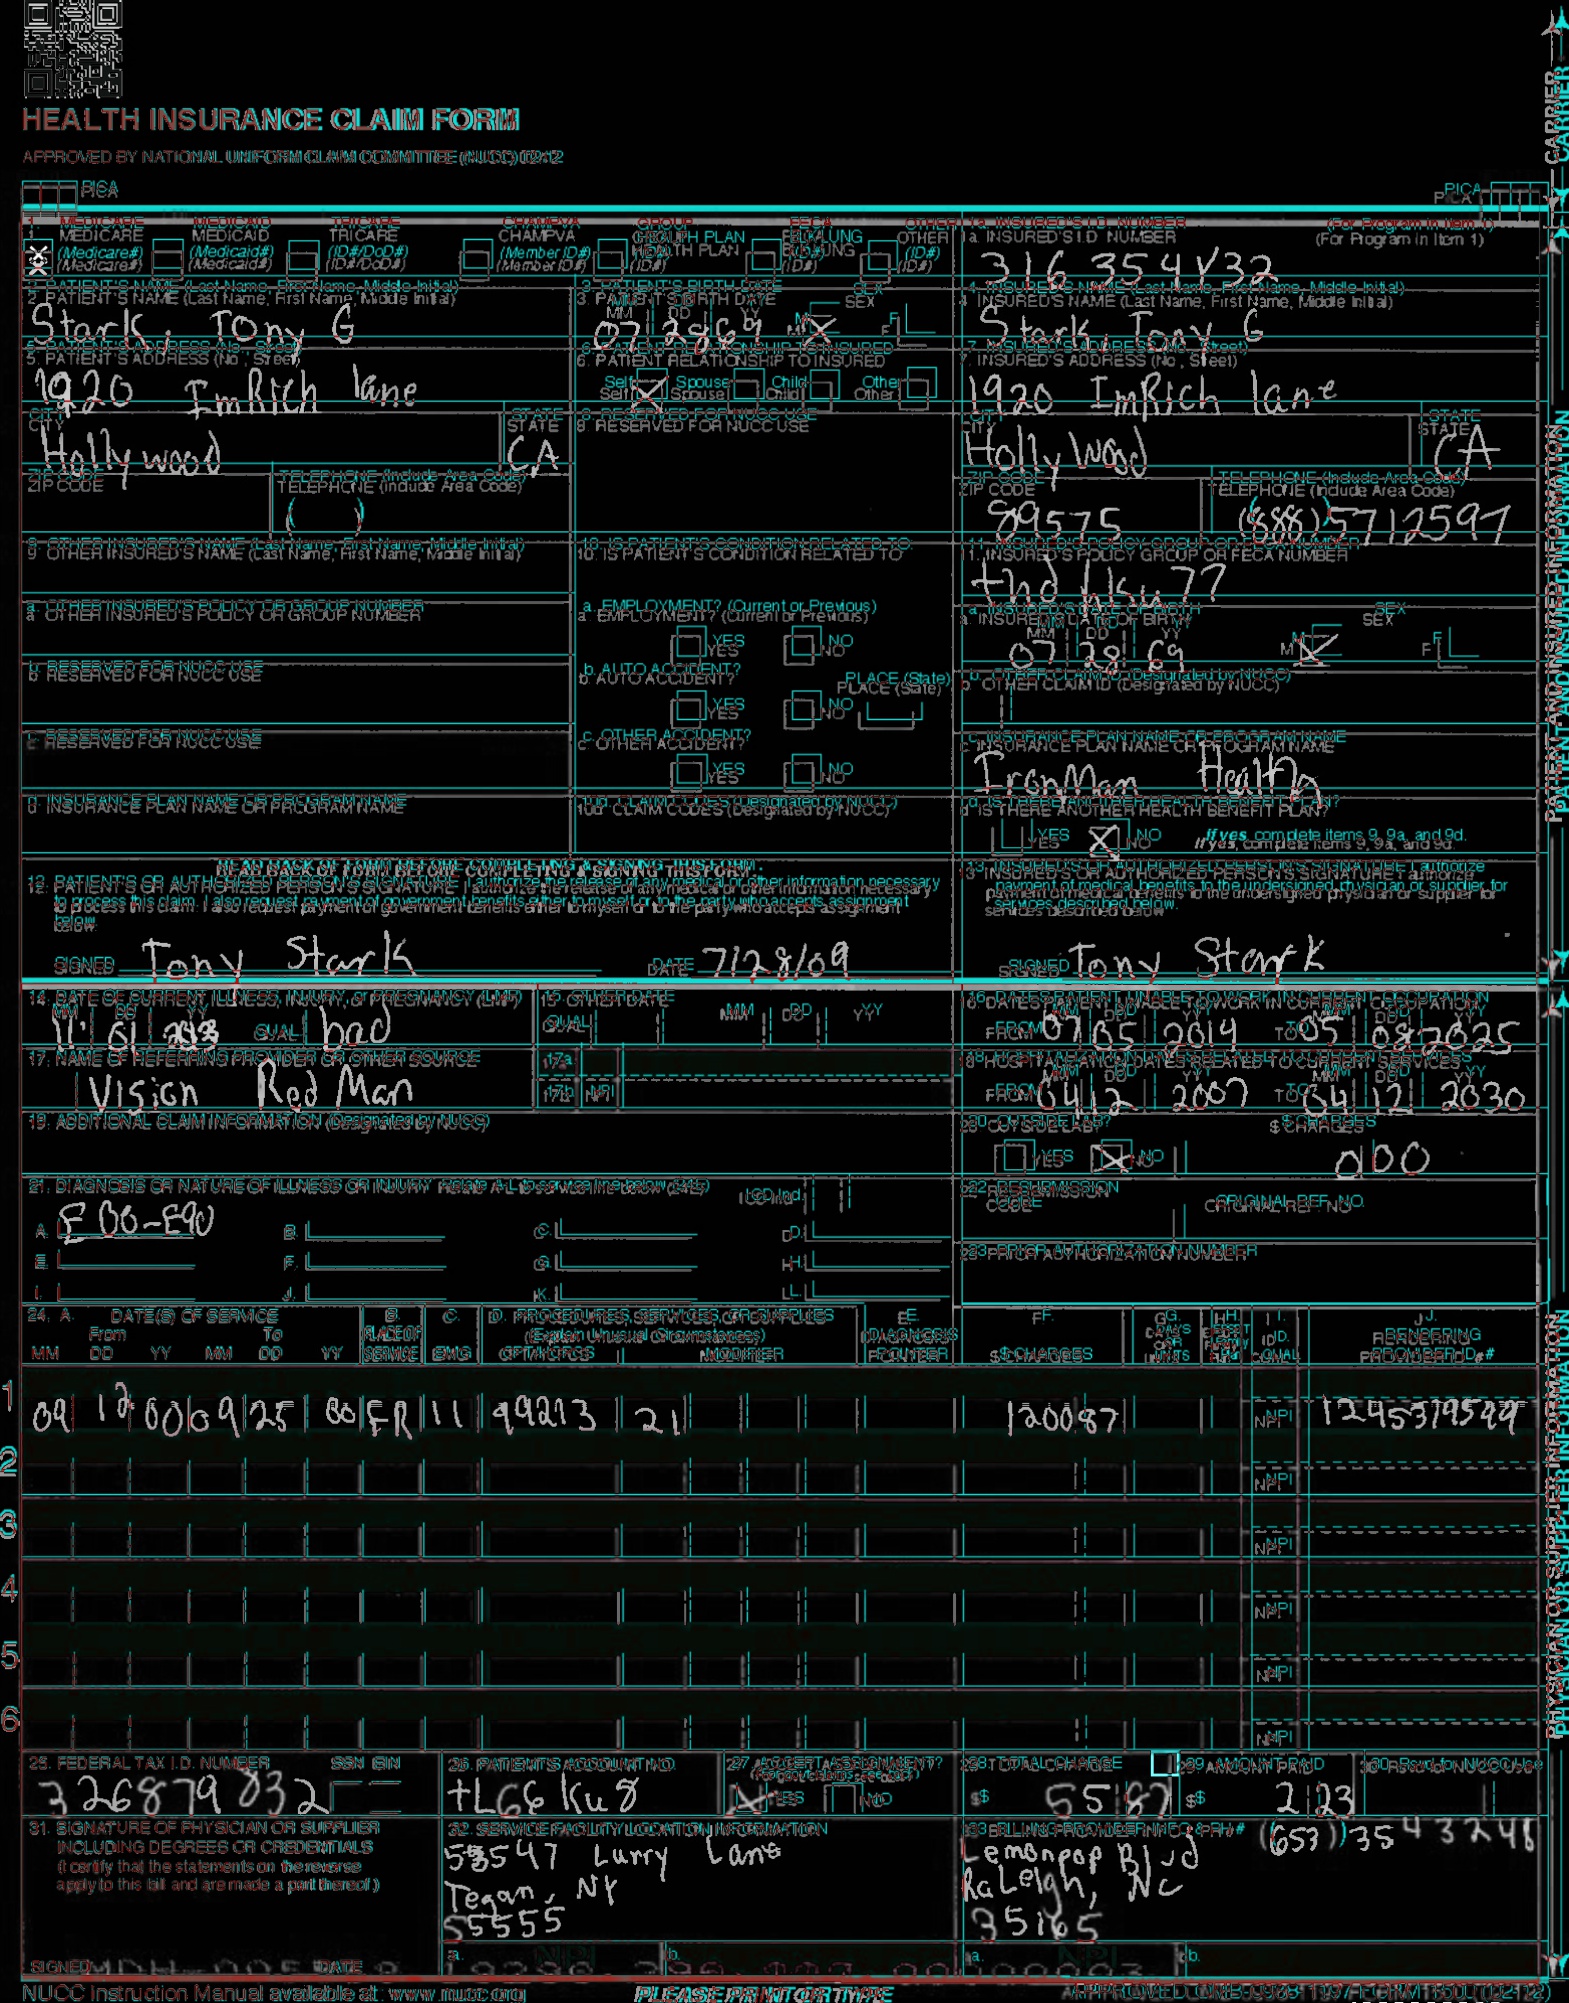 HEALTH INSURANCE CLAIM FORM
APPROVED BY NATIONAL UNIFORM CLAIM COMMITTEE (NUCC) 02/12
PICA PICA
CARRIER
1. MEDICARE MEDICAID TRICARE CHAMPVA GROUP HEALTH PLAN FECA BLK LUNG OTHER
(Medicare#) (Medicaid#) (ID#/DoD#) (Member ID#) (ID#) (ID#) (ID#)
1a. INSURED'S I.D. NUMBER (For Program in Item 1)
316 354 V32
2. PATIENT'S NAME (Last Name, First Name, Middle Initial)
Stark, Tony G
3. PATIENT'S BIRTH DATE SEX
MM DD YY M F
07 28 69 X
4. INSURED'S NAME (Last Name, First Name, Middle Initial)
Stark, Tony G
5. PATIENT'S ADDRESS (No., Street)
1920 ImRich lane
6. PATIENT RELATIONSHIP TO INSURED
Self Spouse Child Other
7. INSURED'S ADDRESS (No., Street)
1920 ImRich lane
CITY STATE
Hollywood CA
8. RESERVED FOR NUCC USE
CITY STATE
Hollywood CA
ZIP CODE TELEPHONE (Include Area Code)
( )
ZIP CODE TELEPHONE (Include Area Code)
89575 (888) 5712597
9. OTHER INSURED'S NAME (Last Name, First Name, Middle Initial)
10. IS PATIENT'S CONDITION RELATED TO:
11. INSURED'S POLICY GROUP OR FECA NUMBER
a. OTHER INSURED'S POLICY OR GROUP NUMBER
a. EMPLOYMENT? (Current or Previous)
YES NO
a. INSURED'S DATE OF BIRTH SEX
MM DD YY M F
07 28 69 X
b. RESERVED FOR NUCC USE
b. AUTO ACCIDENT? PLACE (State)
YES NO
b. OTHER CLAIM ID (Designated by NUCC)
c. RESERVED FOR NUCC USE
c. OTHER ACCIDENT?
YES NO
c. INSURANCE PLAN NAME OR PROGRAM NAME
IronMan Health
d. INSURANCE PLAN NAME OR PROGRAM NAME
10d. CLAIM CODES (Designated by NUCC)
d. IS THERE ANOTHER HEALTH BENEFIT PLAN?
YES NO If yes, complete items 9, 9a, and 9d.
READ BACK OF FORM BEFORE COMPLETING & SIGNING THIS FORM.
12. PATIENT'S OR AUTHORIZED PERSON'S SIGNATURE I authorize the release of any medical or other information necessary
to process this claim. I also request payment of government benefits either to myself or to the party who accepts assignment
below.
SIGNED Tony Stark DATE 7/28/09
13. INSURED'S OR AUTHORIZED PERSON'S SIGNATURE I authorize
payment of medical benefits to the undersigned physician or supplier for
services described below.
SIGNED Tony Stark
PATIENT AND INSURED INFORMATION
14. DATE OF CURRENT ILLNESS, INJURY, or PREGNANCY (LMP)
MM DD YY
11 01 QUAL. bad
15. OTHER DATE
QUAL. MM DD YY
16. DATES PATIENT UNABLE TO WORK IN CURRENT OCCUPATION
MM DD YY MM DD YY
FROM 07 05 2019 TO 05 08 2025
17. NAME OF REFERRING PROVIDER OR OTHER SOURCE
Vision Red Man
17a.
17b. NPI
18. HOSPITALIZATION DATES RELATED TO CURRENT SERVICES
MM DD YY MM DD YY
FROM 04 12 2007 TO 04 12 2030
19. ADDITIONAL CLAIM INFORMATION (Designated by NUCC)
20. OUTSIDE LAB? $ CHARGES
YES NO 000
21. DIAGNOSIS OR NATURE OF ILLNESS OR INJURY Relate A-L to service line below (24E) ICD Ind.
A. E00-E90 B. C. D.
E. F. G. H.
I. J. K. L.
22. RESUBMISSION CODE ORIGINAL REF. NO.
23. PRIOR AUTHORIZATION NUMBER
24. A. DATE(S) OF SERVICE B. C. D. PROCEDURES, SERVICES, OR SUPPLIES E. F. G. H. I. J.
From To PLACE OF (Explain Unusual Circumstances) DIAGNOSIS DAYS OR ID. RENDERING
MM DD YY MM DD YY SERVICE EMG CPT/HCPCS MODIFIER POINTER $ CHARGES UNITS QUAL. PROVIDER ID. #
1 09 12 00 09 25 00 ER 11 99213 21 120087 NPI 1245319599
2 NPI
3 NPI
4 NPI
5 NPI
6 NPI
25. FEDERAL TAX I.D. NUMBER SSN EIN
326879832
26. PATIENT'S ACCOUNT NO.
tLG6Ku8
27. ACCEPT ASSIGNMENT?
YES NO
28. TOTAL CHARGE
$ 55 87
29. AMOUNT PAID
$ 2 23
30. Rsvd for NUCC Use
31. SIGNATURE OF PHYSICIAN OR SUPPLIER
INCLUDING DEGREES OR CREDENTIALS
(I certify that the statements on the reverse
apply to this bill and are made a part thereof.)
SIGNED DATE
32. SERVICE FACILITY LOCATION INFORMATION
58547 Lurry Lane
Tegan, NY
55555
a. b.
33. BILLING PROVIDER INFO & PH # (653) 3543248
Lemonpop Blvd
Raleigh, NC
35165
a. b.
PHYSICIAN OR SUPPLIER INFORMATION
NUCC Instruction Manual available at: www.nucc.org
PLEASE PRINT OR TYPE